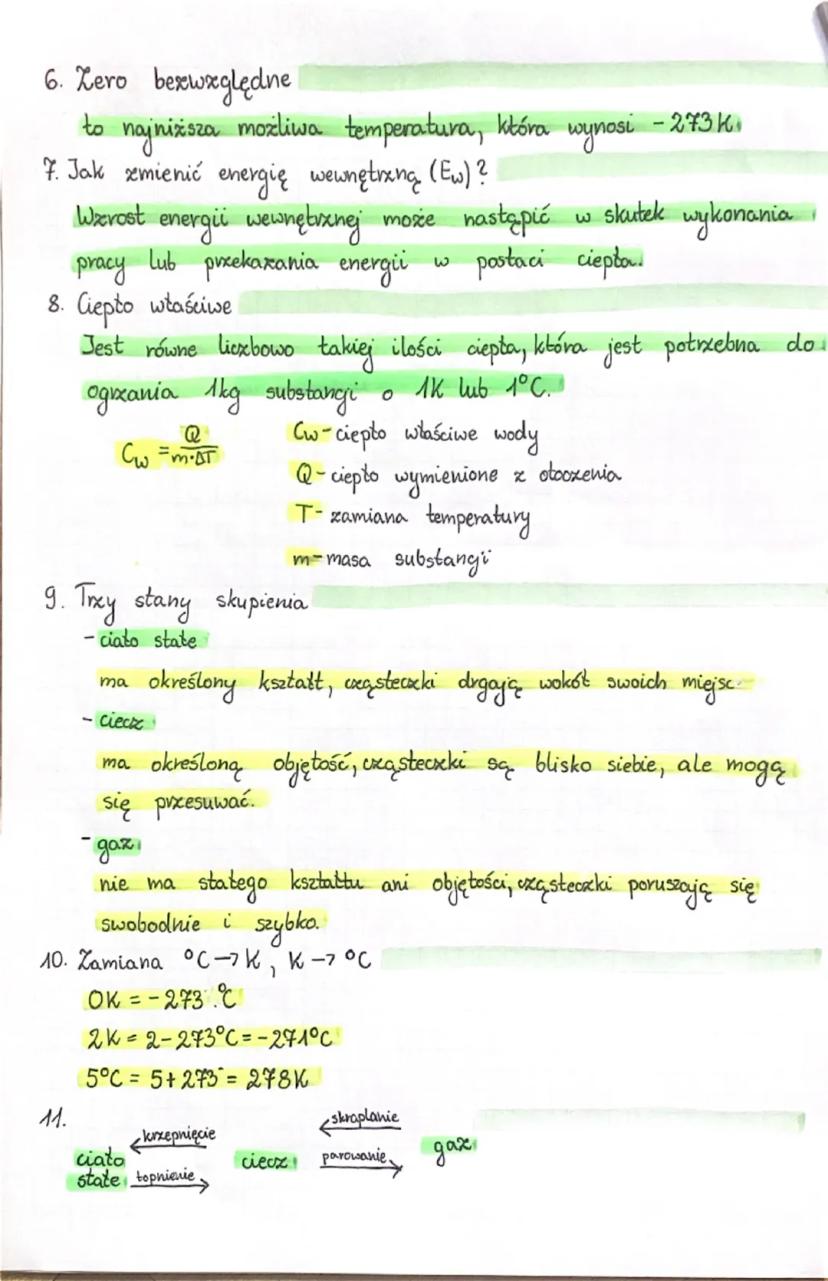 6. Zero bezwzględne
to najniższa możliwa temperatura, która wynosi -273K.
7. Jak zmienić energię wewnętrzną (Ew)?
Wzrost energii wewnętrznej może nastąpić w skutek wykonania
pracy lub przekazania energii w postaci ciepła.
8. Ciepło właściwe
Jest równe liczbowo takiej ilości ciepła, która jest potrzebna do
ogrzania 1kg substancji o 1K lub 1°C.
Cw = Q / m·ΔT
Cw - ciepło właściwe wody
Q - ciepło wymienione z otoczenia
T - zamiana temperatury
m - masa substancji
9. Trzy stany skupienia
- ciało stałe
ma określony kształt, cząsteczki drgają wokół swoich miejsc.
- ciecz
ma określoną objętość, cząsteczki są blisko siebie, ale mogą
się przesuwać.
- gaz
nie ma stałego kształtu ani objętości, cząsteczki poruszają się
swobodnie i szybko.
10. Zamiana °C → K, K → °C
0K = -273°C
2K = 2-273°C = -271°C
5°C = 5+273 = 278K
11.
skraplanie
krzepnięcie
ciało ciecz parowanie gaz
stałe topnienie